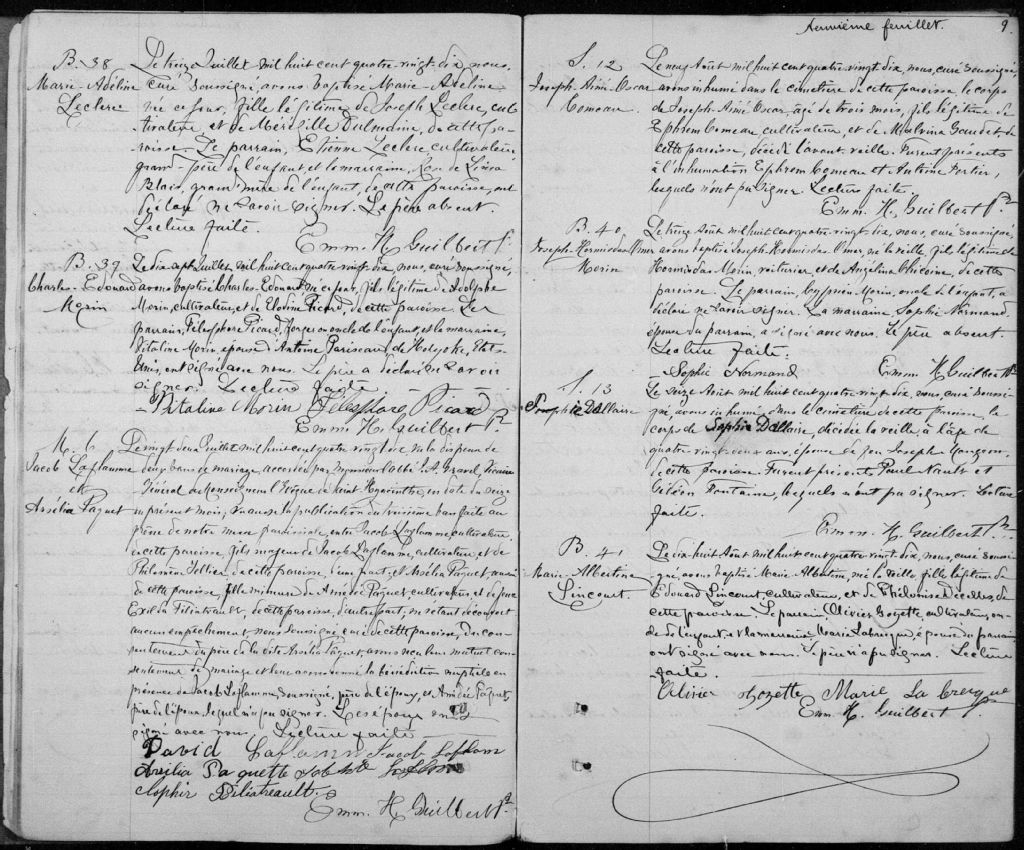 B. 38
Marie-Adéline
Leclerc
Le treize Juillet mil huit cent quatre-vingt-dix, nous
curé soussigné, avons baptisé Marie-Adéline
née ce jour, fille légitime de Joseph Leclerc, cul-
tivateur, et de de cette pa-
roisse. Le parrain, Etienne Leclerc cultivateur
grand-père de l'enfant, et la marraine, Rose de Lima
Blais, grand'mère de l'enfant, de cette paroisse, ont
déclaré ne savoir signer. Le père absent.
Lecture faite.
Emm. H. Guilbert Ptr
B. 39
Charles-Edouard
Morin
Le dix sept Juillet mil huit cent quatre-vingt-dix, nous, curé soussigné,
avons baptisé Charles-Edouard né ce jour, fils légitime de Adolphe
Morin, cultivateur, et de Elodie Picard, de cette paroisse. Le
parrain, Télesphore Picard, forgeron oncle de l'enfant, et la marraine,
Vitaline Morin épouse d'Antoine Pariseau, de Holyoke, Etats-
Unis, ont signé avec nous. Le père a déclaré ne savoir
signer. Lecture faite.
Vitaline Morin Télesphore Picard
Emm. H. Guilbert Ptr
M. 6
Jacob Laflamme
et
Arsélia Paquet
Le vingt deux Juillet mil huit cent quatre-vingt-dix, vu la dispense de
deux bans de mariage, accordée par Monsieur l'abbé J. A. Gravel, Vicaire
Général de Monseigneur l'Evêque de Saint-Hyacinthe, en date du seize
du présent mois, vu aussi la publication du troisième ban faite au
prône de notre messe paroissiale, entre Jacob Laflamme cultivateur
de cette paroisse, fils majeur de Jacob Laflamme, cultivateur, et de
Philomène Tellier de cette paroisse, d'une part; et Arsélia Paquet, aussi
de cette paroisse, fille mineure de Amédée Paquet cultivateur, et de feue
Exilda Filiatreault, de cette paroisse, d'autre part; ne s'étant découvert
aucun empêchement, nous soussigné, curé de cette paroisse, du con-
sentement du père de la dite Arsélia Paquet, avons reçu leur mutuel con-
sentement de mariage et leur avons donné la bénédiction nuptiale en
présence de Jacob Laflamme, soussigné, père de l'époux, et Amédée Paquet,
père de l'épouse, lequel n'a pu signer. Les époux ont
signé avec nous. Lecture faite.
David Laflamme Jacob Laflam
Arsélia Paquette
Sophie Filiatreault.
Emm. H. Guilbert Ptr
Neuvième feuillet. 9
S. 12
Joseph-Aimé-Oscar
Comeau.
Le neuf Août mil huit cent quatre vingt dix, nous, curé soussigné
avons inhumé dans le cimetière de cette paroisse, le corps
de Joseph-Aimé Oscar, âgé de trois mois, fils légitime de
Ephrem Comeau, cultivateur, et de Malvina Gaudet, de
cette paroisse, décédé l'avant veille. Furent présents
à l'inhumation Ephrem Comeau et Antoine Fortier,
lesquels n'ont pu signer. Lecture faite.
Emm. H. Guilbert Ptr
B. 40
Joseph-Hormisdas Omer
Morin
Le treize Août mil huit cent quatre-vingt dix, nous, curé soussigné,
avons baptisé Joseph-Hormisdas Omer, né la veille, fils légitime de
Hormisdas Morin, voiturier, et de Angelina Chicoine, de cette
paroisse. Le parrain, Cyprien Morin, oncle de l'enfant, a
déclaré ne savoir signer. La marraine, Sophie Normand,
épouse du parrain, a signé avec nous. Le père absent.
Lecture faite.
Sophie Normand Emm. H. Guilbert Ptr
S. 13
Sophie Dallaire
Le seize Août mil huit cent quatre vingt dix, nous, curé soussi-
gné, avons inhumé dans le cimetière de cette paroisse, le
corps de Sophie Dallaire, décédée la veille, à l'âge de
quatre-vingt-deux ans, épouse de feu Joseph
de cette paroisse. Furent présents Paul Nault et
Gédéon Fontaine, lesquels n'ont pu signer. Lecture
faite.
Emm. H. Guilbert Ptr
B. 41
Marie-Albertine
Lincourt.
Le dix-huit Août mil huit cent quatre vingt dix, nous, curé soussi-
gné, avons baptisé Marie Albertine, née la veille, fille légitime de
Edouard Lincourt, cultivateur, et de Philomise de
cette paroisse. Le parrain, Olivier Gozette, cultivateur, on-
cle de l'enfant, et la marraine, Marie Labrecque, épouse du parrain
ont signé avec nous. Le père n'a pu signer. Lecture
faite.
Olivier Gozette Marie La brecque
Emm. H. Guilbert Ptr